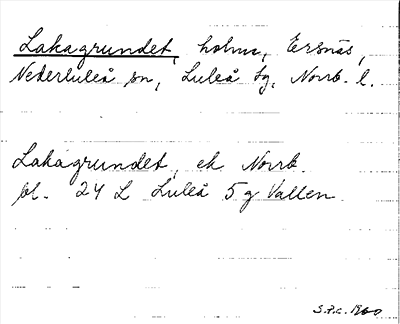 Lakagrundet, holme, Ersnäs,
Nederluleå sn, Luleå tg, Norrb. l.
Lakagrundet, ek Norrb.
bl. 24 L Luleå 5 g Vallen
S.P.C. 1960